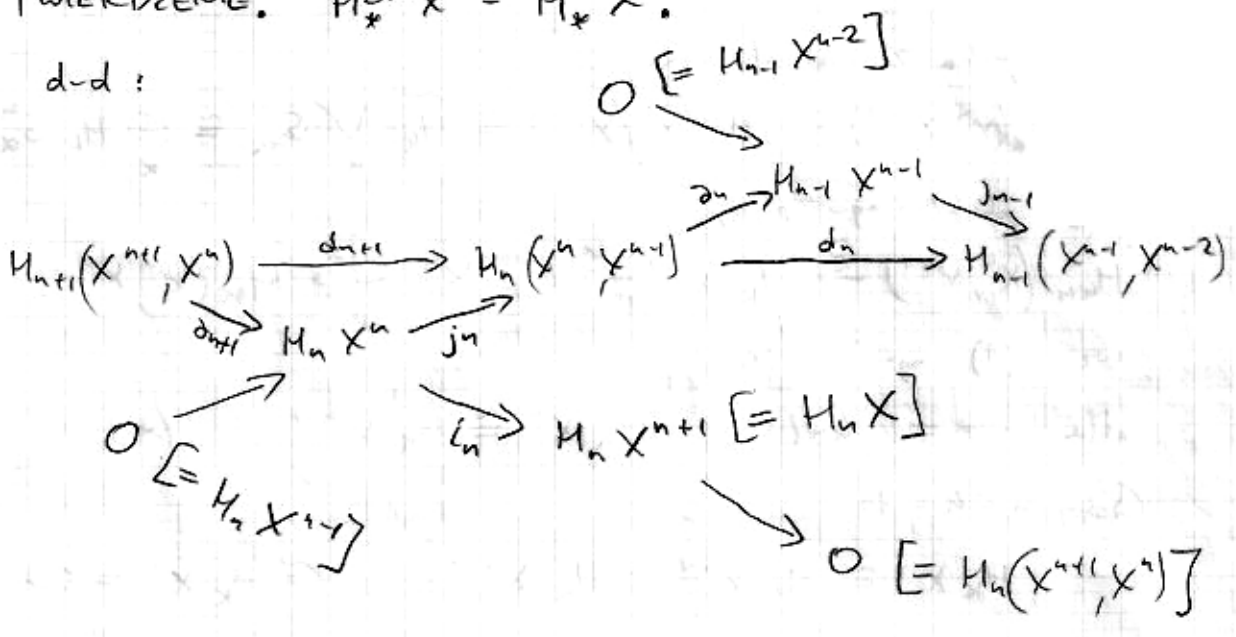 TWIERDZENIE. H_*^{CW} X = H_* X.
d-d:
0 [= H_{n-1} X^{n-2}]
∂_n H_{n-1} X^{n-1} j_{n-1}
H_{n+1}(X^{n+1}, X^n) d_{n+1} H_n(X^n, X^{n-1}) d_n H_{n-1}(X^{n-1}, X^{n-2})
∂_{n+1} H_n X^n j_n
0 [= H_n X^{n-1}] i_n H_n X^{n+1} [= H_n X]
0 [= H_n(X^{n+1}, X^n)]